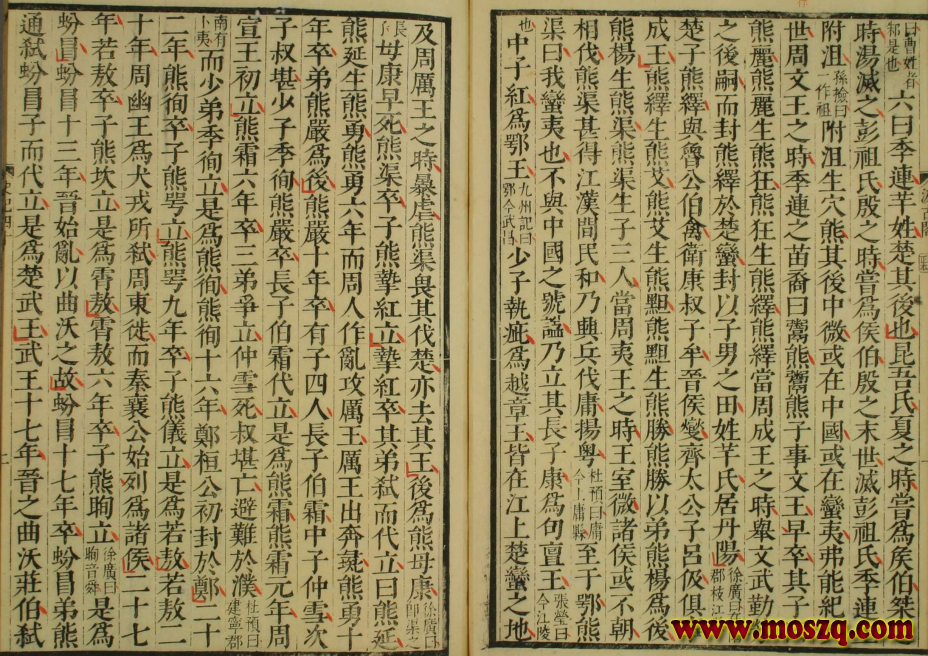 曰曹姓者邾是也六曰季連羋姓楚其後也昆吾氏夏之時嘗爲侯伯桀
時湯滅之彭祖氏殷之時嘗爲侯伯殷之末世滅彭祖氏季連
附沮孫檢曰一作祖附沮生穴熊其後中微或在中國或在蠻夷弗能紀
世周文王之時季連之苗裔曰鬻熊鬻熊子事文王早卒其子
熊麗熊麗生熊狂熊狂生熊繹熊繹當周成王之時舉文武勤
之後嗣而封熊繹於楚蠻封以子男之田姓羋氏居丹陽徐廣曰在郡枝江
楚子熊繹與魯公伯禽衛康叔子牟晉侯燮齊太公子呂伋俱
成王熊繹生熊艾熊艾生熊䵣熊䵣生熊勝熊勝以弟熊楊爲後
熊楊生熊渠熊渠生子三人當周夷王之時王室微諸侯或不朝
相伐熊渠甚得江漢間民和乃興兵伐庸揚粵杜預曰庸今上庸縣至于鄂熊
渠曰我蠻夷也不與中國之號謚乃立其長子康爲句亶王張瑩曰今江陵
也中子紅爲鄂王九州記曰鄂今武昌少子執疵爲越章王皆在江上楚蠻之地
及周厲王之時暴虐熊渠畏其伐楚亦去其王後爲熊毋康徐廣曰即渠之
長毋康早死熊渠卒子熊摯紅立摯紅卒其弟弒而代立曰熊延
熊延生熊勇熊勇六年而周人作亂攻厲王厲王出奔彘熊勇十
年卒弟熊嚴爲後熊嚴十年卒有子四人長子伯霜中子仲雪次
子叔堪少子季徇熊嚴卒長子伯霜代立是爲熊霜熊霜元年周
宣王初立熊霜六年卒三弟爭立仲雪死叔堪亡避難於濮杜預曰建寧郡
南有卜夷而少弟季徇立是爲熊徇熊徇十六年鄭桓公初封於鄭二十
二年熊徇卒子熊咢立熊咢九年卒子熊儀立是爲若敖若敖二
十年周幽王爲犬戎所弒周東徙而秦襄公始列爲諸侯二十七
年若敖卒子熊坎立是爲霄敖霄敖六年卒子熊眴立徐廣曰眴音舜是爲
蚡冒蚡冒十三年晉始亂以曲沃之故蚡冒十七年卒蚡冒弟熊
通弒蚡冒子而代立是爲楚武王武王十七年晉之曲沃莊伯弒
www.moszq.com